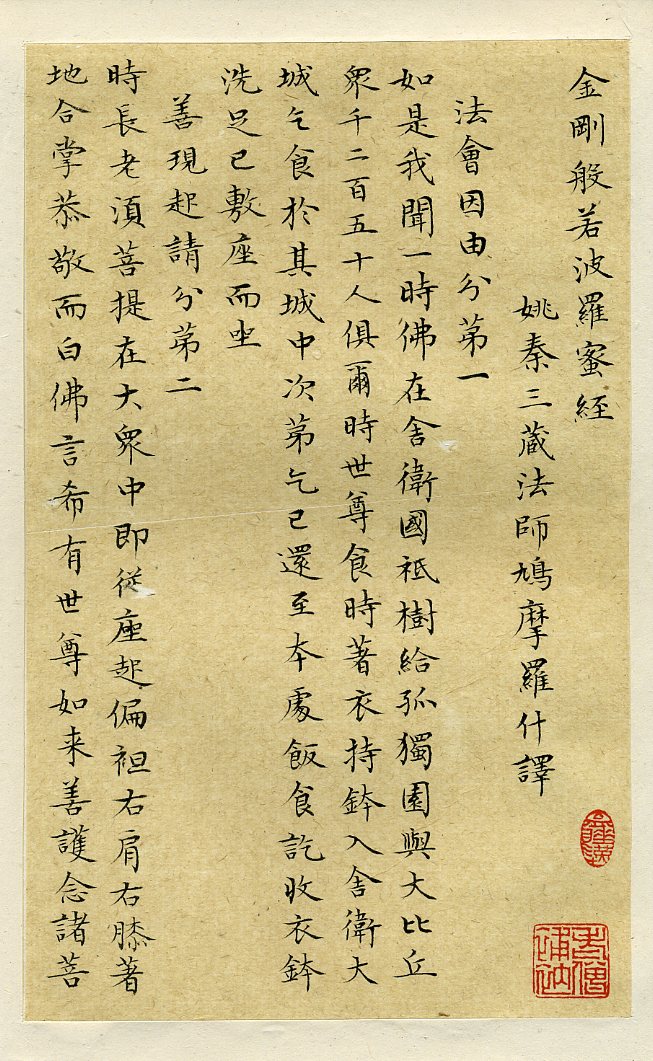 金剛般若波羅蜜経
姚秦三蔵法師鳩摩羅什譯
法會因由分苐一
如是我聞一時佛在舍衛國祇樹給孤獨園與大比丘
眾千二百五十人俱爾時世尊食時著衣持鉢入舍衛大
城乞食於其城中次苐乞已還至本處飯食訖收衣鉢
洗足已敷座而坐
善現起請分苐二
時長老須菩提在大眾中即從座起偏袒右肩右膝著
地合掌恭敬而白佛言希有世尊如来善護念諸菩